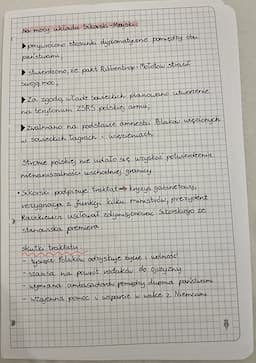 Na mocy układu Sikorski-Majski:
▶ przywrócono stosunki dyplomatyczne pomiędzy dwoma
państwami,
▶ stwierdzono, że pakt Ribbentrop-Mołotow stracił
swoją moc,
▶ Za zgodą władz sowieckich planowano utworzenie
na terytorium ZSRS polskiej armii,
▶ zwalniano na podstawie amnestii Polaków więzionych
w sowieckich łagrach i więzieniach
Stronie polskiej nie udało się uzyskać potwierdzenia
nienaruszalności wschodniej granicy
• Sikorski podpisuje traktat → kryzys gabinetowy,
rezygnacja z funkcji kilku ministrów, prezydent
Raczkiewicz usiłował zdymisjonować Sikorskiego ze
stanowiska premiera
Skutki traktatu
- tysiące Polaków odzyskuje życie i wolność
- szansa na powrót rodaków do ojczyzny
- wymiana ambasadorów pomiędzy dwoma państwami
- wzajemna pomoc i wsparcie w walce z Niemcami